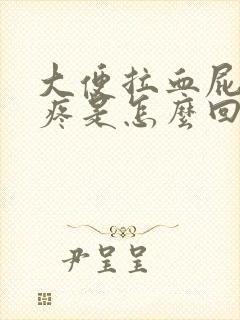 大便拉血屁
疼是怎麼回
尹呈呈